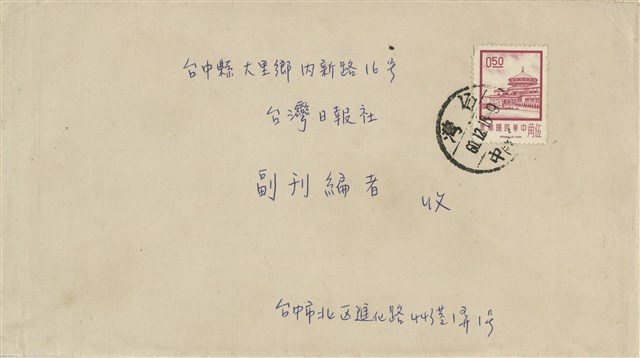 台中縣大里鄉內新路16号
台灣日報社
副刊編者
收
台中市北区進化路44巷1弄1号
0.50
中華民國郵票
伍角
台
灣
61.12.15.9
中